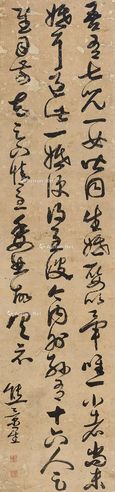 吾有七兒一女皆同生婚娶以畢唯一小者尚未
婚耳過此一婚便得至彼今內外孫有十六人足
慰目前足下情至委曲故具示
熊景星